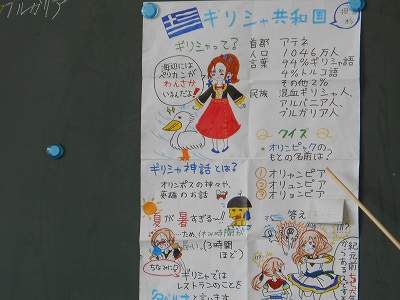 ブルガリア
ギリシャ共和国
ギリシャって?
海辺には
ペリカンが
わんさか
いるんだよ!
首都 アテネ
人口 1046万人
言葉 94%ギリシャ語
4%トルコ語
その他2%
民族 混血ギリシャ人、
アルバニア人、
ブルガリア人
クイズ
オリンピックの
もとの名前は?
①オリャンピア
②オリュンピア
③オリョンピア
答え
ギリシャ神話とは?
オリンポスの神々や、
英雄のお話
夏が暑すぎる…!!
…ため、休み時間が
長い。(3時間
ほど)
ちなみに
ギリシャでは
レストランのことを
と言います
紀元前